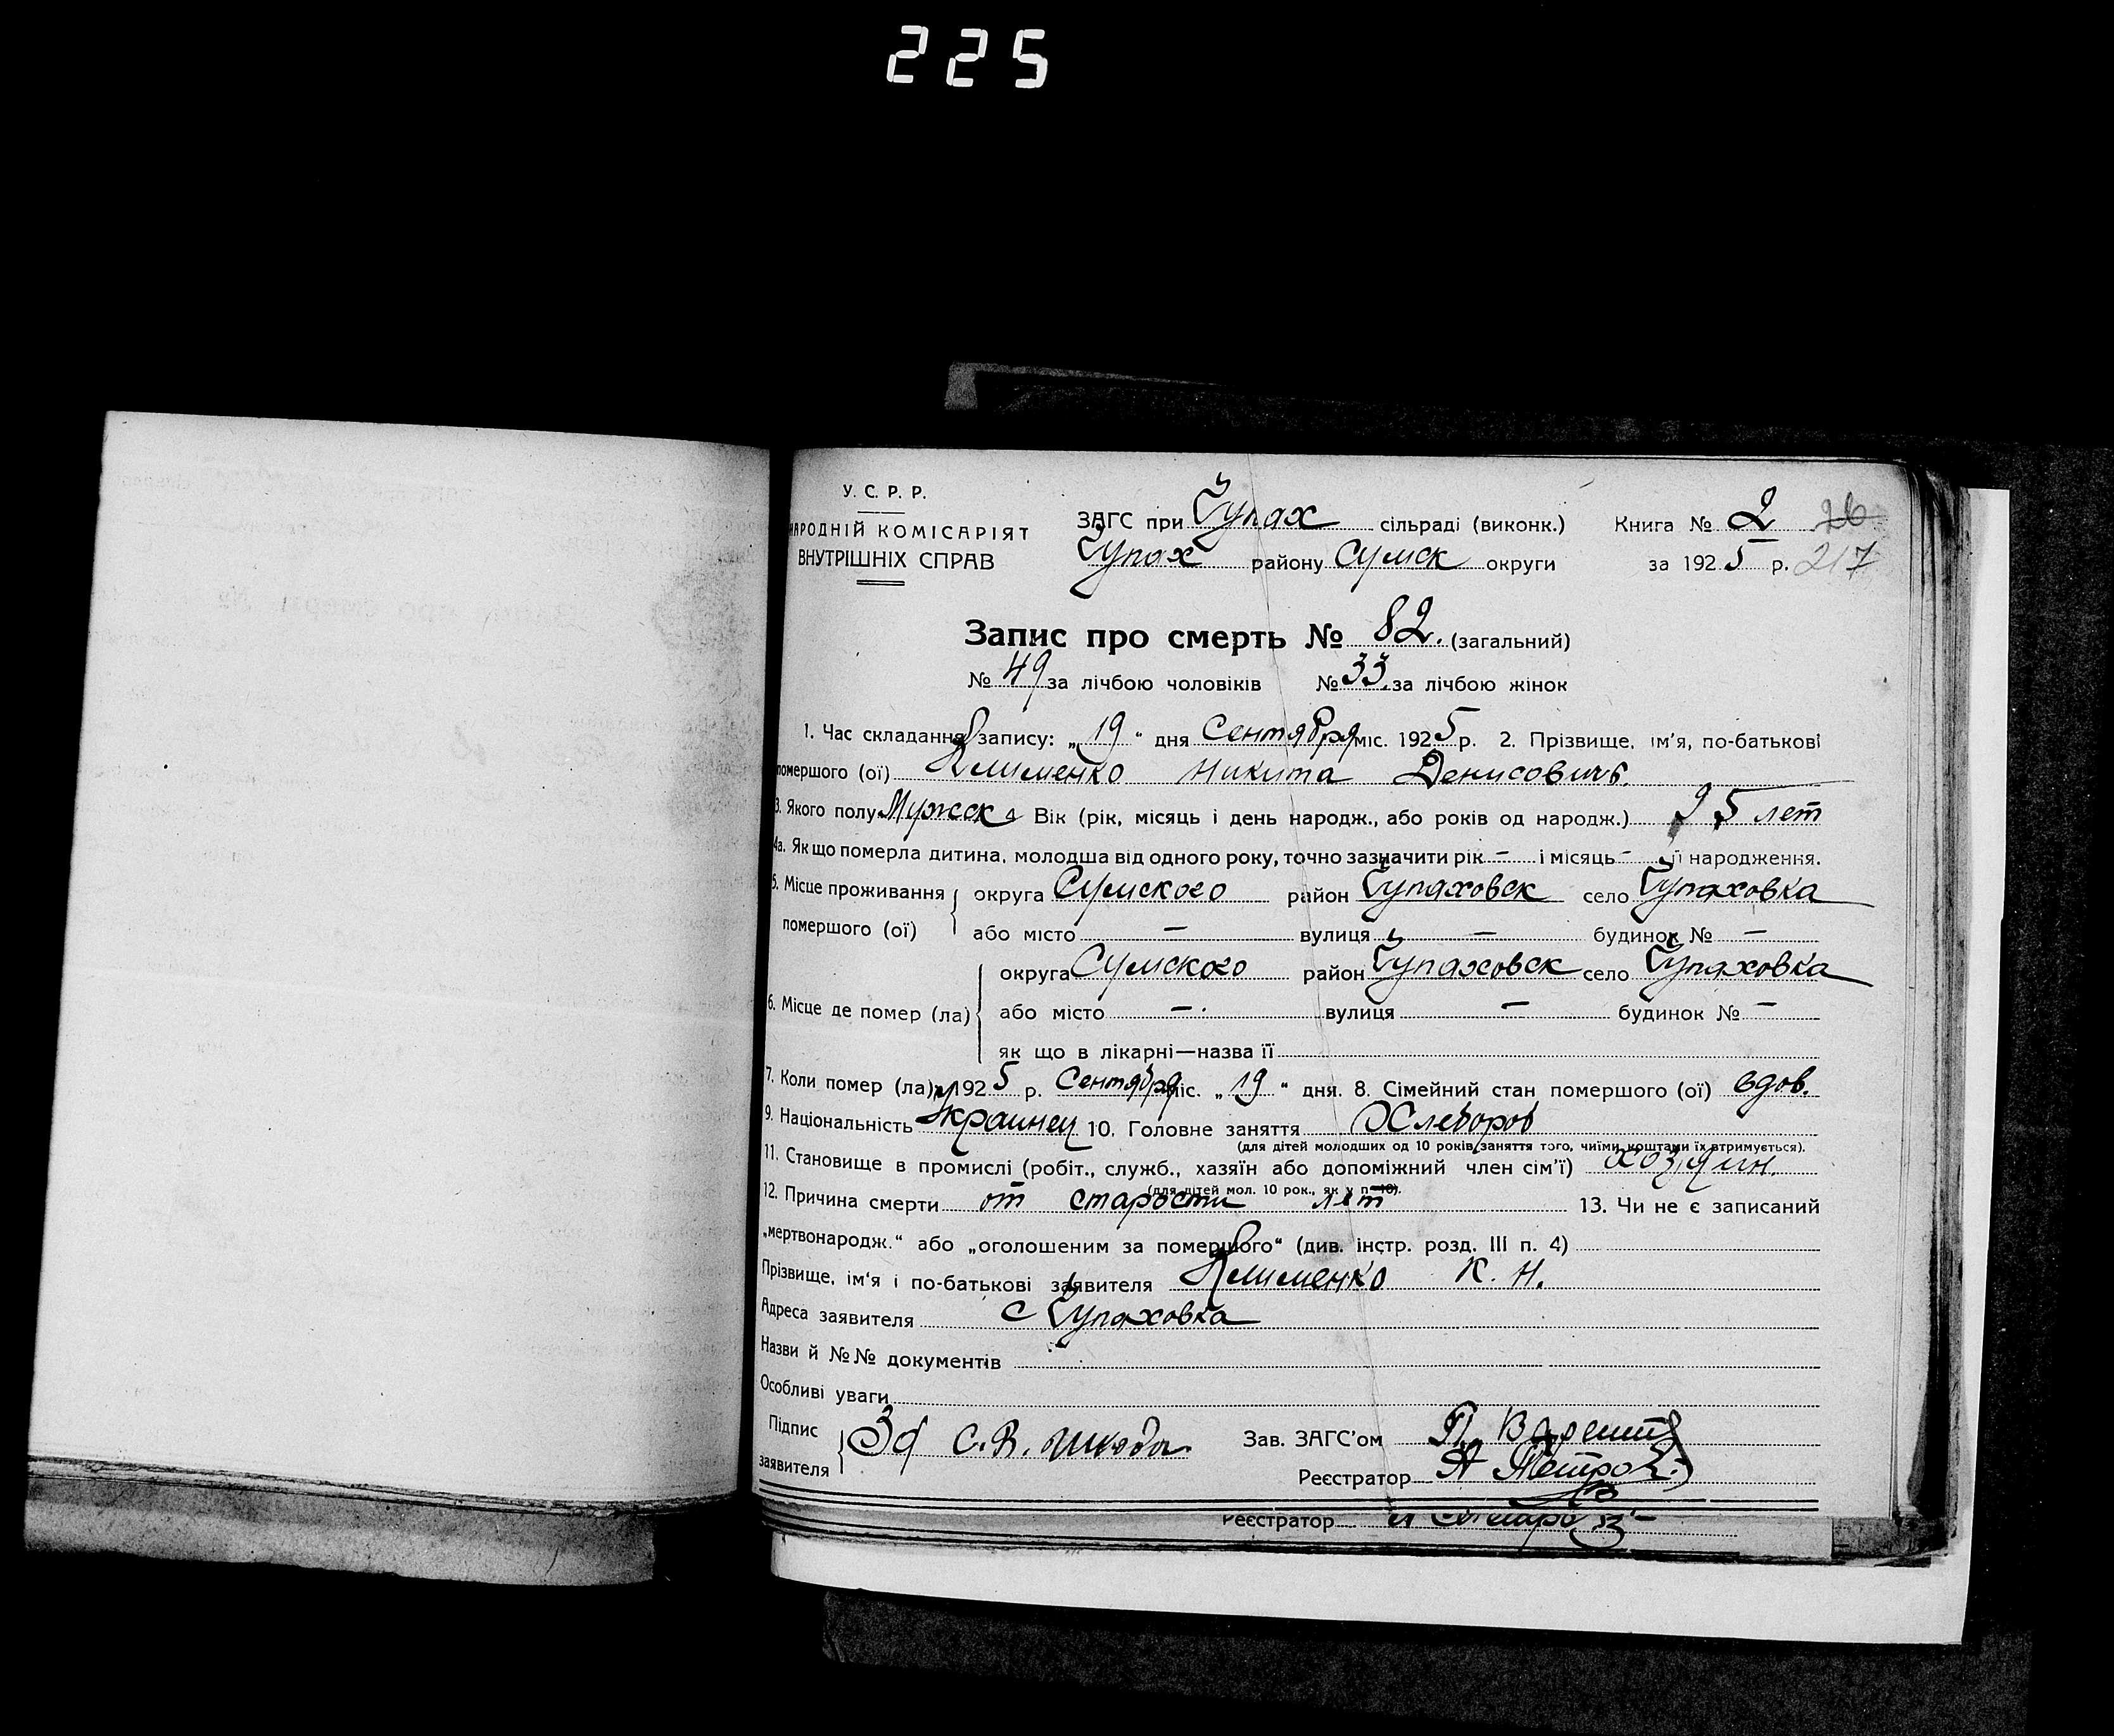 225
У. С. Р. Р.
НАРОДНІЙ КОМІСАРІЯТ
ВНУТРІШНІХ СПРАВ
ЗАГС при Чупах сільраді (виконк.)
Чупах району Сумск округи
Книга № 2 26
за 1925 р. 217
Запис про смерть № 82. (загальний)
№ 49 за лічбою чоловіків № 33. за лічбою жінок
1. Час складання запису: „19“ дня Сентября міс. 1925 р. 2. Прізвище, ім'я, по-батькові
помершого (ої) Клименко Никита Денисович.
3. Якого полу Мужск 4 Вік (рік, місяць і день народж., або років од народж.) 95 лет
4а. Як що померла дитина, молодша від одного року, точно зазначити рік – і місяць – її народження.
5. Місце проживання помершого (ої) округа Сумского район Чупаховск село Чупаховка
або місто – вулиця – будинок № –
6. Місце де помер (ла) округа Сумского район Чупаховск село Чупаховка
або місто – . вулиця – будинок № –
як що в лікарні—назва її
7. Коли помер (ла) 1925 р. Сентября міс. „19“ дня. 8. Сімейний стан помершого (ої) вдов.
9. Національність Украинец 10. Головне заняття Хлебороб
(для дітей молодших од 10 років, заняття того, чиїми коштами їх втримується).
11. Становище в промислі (робіт., служб., хазяїн або допоміжний член сім'ї) хозяин.
(для дітей мол. 10 рок., як у п. 10).
12. Причина смерти от старости лет 13. Чи не є записаний
„мертвонародж.“ або „оголошеним за помершого“ (див. інстр. розд. III п. 4)
Прізвище, ім'я і по-батькові заявителя Клименко К. Н.
Адреса заявителя с Чупаховка
Назви й №№ документів
Особливі уваги
Підпис заявителя За С. В. Шкода
Зав. ЗАГС'ом
Реєстратор
Реєстратор